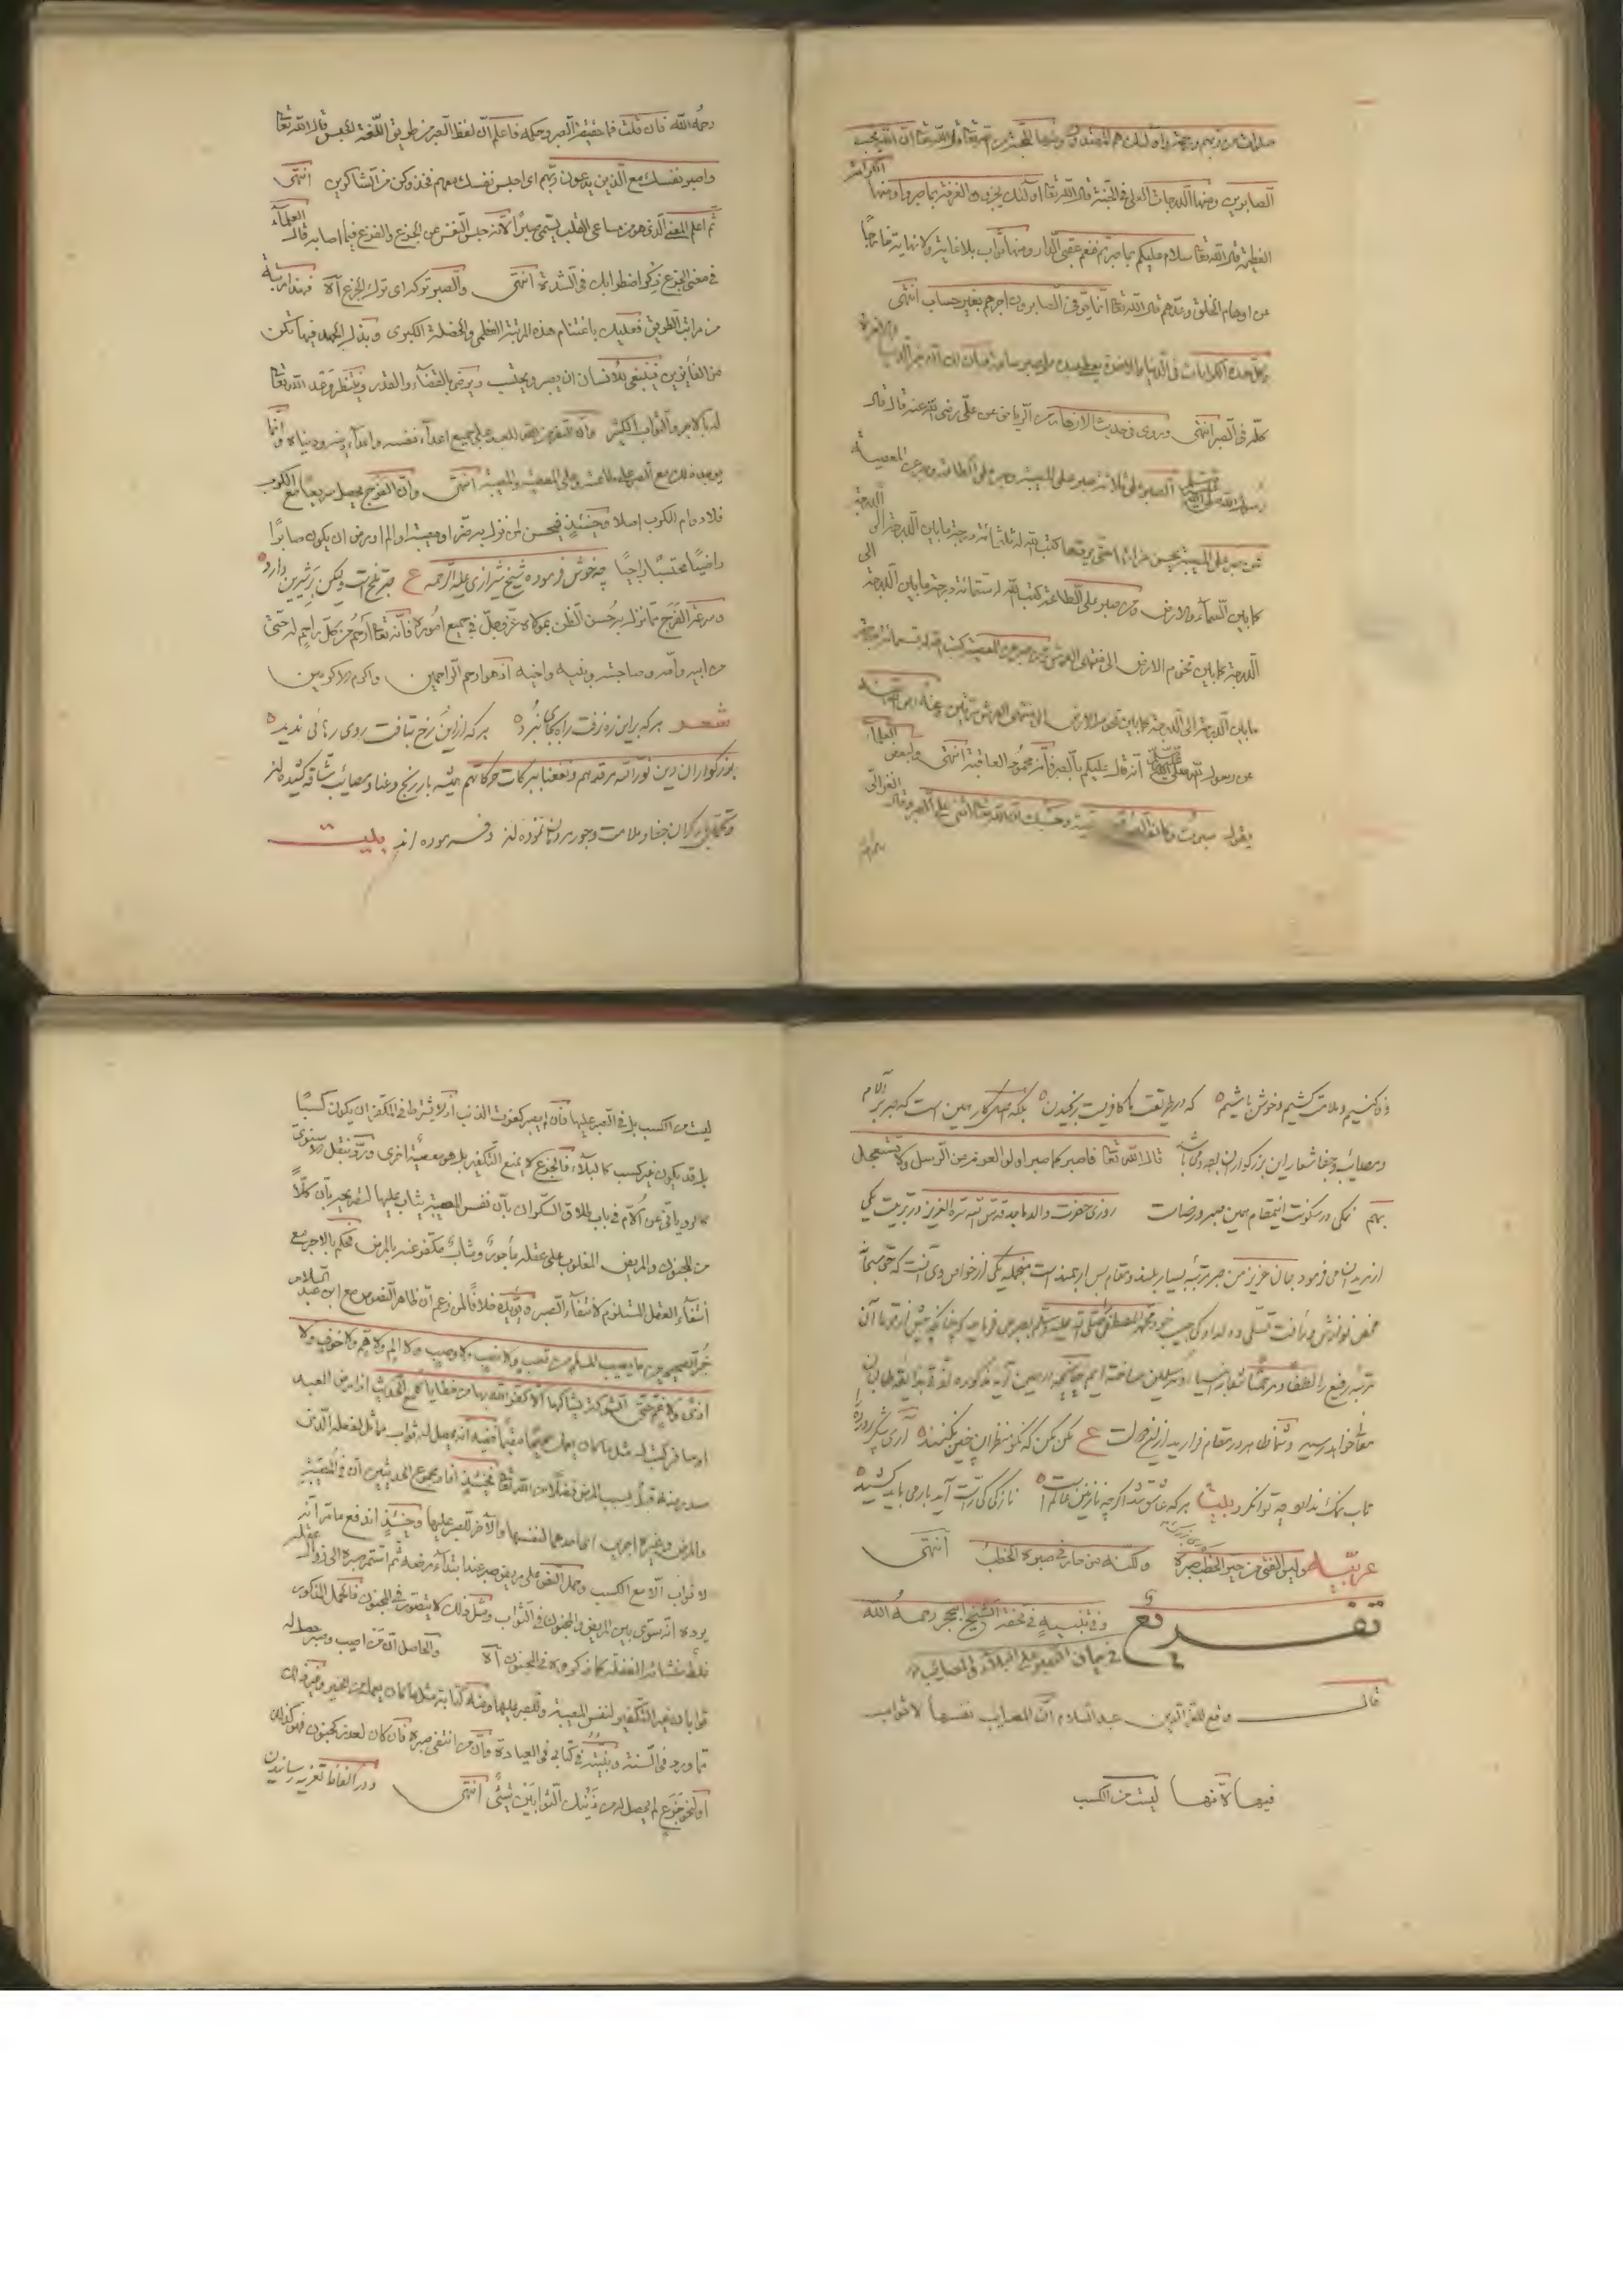 صلوات من ربهم ورحمة واولئك هم المهتدون ومنها المحبة من الله تعالى قال الله تعالى ان الله يحب
الصابرين ومنها الدرجات العلى فى الجنة قال الله تعا اولئك يجزون الغرفة بما صبروا ومنها الكرامة
العظيمة قال الله تعا سلام عليكم بما صبرتم فنعم عقبى الدار ومنها ثواب بلا غاية ولا نهاية خارجا
عن اوهام الخلق وعدهم قال الله تعا انما يوفى الصابرون اجرهم بغير حساب انتهى
كله فى الصبر انتهى وروى فى حديث الازهار من الرياض عن على رضى الله عنه قال قال
رسول الله صلى الله الصبر على ثلاثة صبر على المصيبة وصبر على الطاعة وصبر عن المعصية
فمن صبر على المصيبة بحسن عزائها حتى يردها كتب الله له ثلثمائة درجة ما بين الدرجة الى الدرجة
كما بين السماء والارض ومن صبر على الطاعة كتب الله له ستمائة درجة ما بين الدرجة الى
الدرجة كما بين تخوم الارض الى منتهى العرش ومن صبر عن المعصية كتب الله له تسعمائة درجة
ما بين الدرجة الى الدرجة كما بين تخوم الارض الى منتهى العرش مرتين
عن رسول الله صلى الله انه قال عليكم بالصبر فانه محمود العاقبة انتهى ولبعض العلماء
يقول وحسبك ان الله تعا اثنى على الصبر وقال الغزالى
رحمه الله فان قلت فما حقيقة الصبر وحكمه فاعلم ان لفظ الصبر من طريق اللغة الحبس قال الله تعا
واصبر نفسك مع الذين يدعون ربهم اى احبس نفسك معهم فخذ وكن من الشاكرين انتهى
ثم اعلم المعنى الذى هو من مساعى القلب يسمى صبرا لانه حبس النفس عن الجزع والفزع فيما اصابه قال العلماء
فى معنى الجزع ذكر اضطرابك فى الشدة انتهى والصبر تركه اى ترك الجزع آه فهذا مرتبة
من مراتب الطريق فعليك باغتنام هذه المرتبة العظمى والخصلة الكبرى وبذل الجهد فيها تكن
من الفائزين فينبغى للانسان ان يصبر ويحتسب ويرضى بالقضاء والقدر وينتظر وعد الله تعا
له بالاجر والثواب الكثير وان
انتهى وان الفرج يحصل سريعا مع الكرب
فلا دوام الكرب اصلا وحينئذ فيحسن لمن نزل به ضر او مصيبة او الم او مرض ان يكون صابرا
راضيا محتسبا راجيا چه خوش فرموده شيخ شيرازى عليه الرحمه ع صبر تلخ است وليكن بر شيرين دارد
وسرعة الفرج مما نزل به بحسن الظن بمولاه عز وجل فى جميع اموره فانه تعا ارحم من كل راحم له حتى
من ابيه وامه وصاحبته وبنيه واخيه اذ هو ارحم الراحمين واكرم الاكرمين
شعر هركه براين ره نرفت راه بجاى نبرد هركه ازاين رخ بتافت روى رهائى نديد
بزركواران دين نور الله مرقدهم ونفعنا ببركات حركاتهم هميشه بار رنج وعنا ومصائب شاقه كشيده اند
وتحمل كران جفا وملامت وجور مردمان نموده اند وفرموده اند بليت
وفا كنيم وملامت كشيم وخوش باشيم كه در طريقت ما كافريست رنجيدن بلكه اصل كار همين است كه صبر بر آلام
ومصائب وجفا شعار اين بزركواران بوده مى باشد قال الله تعا فاصبر كما صبر اولوا العزم من الرسل ولا تستعجل
لهم نمكى در سكونت اينمقام همين صبر ورضاست روزى حضرت والد ماجد قدس الله سره العزيز در تربيت يكى
از مريدان مى فرمود جان عزيز من صبر مرتبه بسيار بلند ومقام بس ارجمند است منجمله يكى از خواص وى آنست كه حق سبحانه
محض نوازش ورأفت تسلى ودلدارى حبيب خود محمد المصطفى صلى الله عليه وسلم بصبر مى فرمايد
مرتبه رفيع را لطفا ومرحمتا شعار انبيا ومرسلين ساخته ايم چنانچه در همين آيه مذكوره
ع مكن مكن كه نكو منظران چنين نكنند
تاب نمك ندارد چه توان كرد بليت هركه عاشق شد اكرچه نازنين عالم است نازكى كى راست آيد بار مى بايد كشيد
عربيه وليس الفتى من حير الخطب صبره ولكنه من حار فى صبره الخطب انتهى
تفريع وفى تنبيه فى تحفة الشيخ ابن حجر رحمه الله
فى بيان الصبر على البلاء فى المصائب
قال وقع للعز الدين عبد السلام ان المصائب نفسها لا ثواب
فيها لانها ليست من الكسب
ليست من الكسب بل فى الصبر عليها فان لم يصبر كفرت الذنب اذ لا يشترط فى المكفر ان يكون كسبا
بل قد يكون غير كسب كالبلاء فالجزع لا يمنع التكفير بل هو معصية اخرى ورد بنقل الاسنوى
كالرويانى عن الام فى باب طلاق السكران بان نفس المصيبة يثاب عليها لتصريحه بان كلا
من المجنون والمريض المغلوب على عقله مأجور ومثاب مكفر عنه بالمرض فحكم بالاجر مع
انتفاء العقل المستلزم لانتفاء الصبر ويؤيده خلافا لمن زعم ان ظاهر النصوص مع ابن عبد السلام
خبر الصحيحين ما يصيب المسلم من تعب ولا نصب ولا وصب ولا الم ولا هم ولا خوف ولا
اذى ولا غم حتى الشوكة يشاكها الا كفر الله بها من خطاياه مع الحديث اذا مرض العبد
او سافر كتب له مثل ما كان يعمل صحيحا مقيما ففيه انه يحصل له ثواب مماثل لفعله الذى
صدر منه قبل بسبب المرض فضلا من الله تعا فحينئذ افاد مجموع الحديثين ان فى المصيبة
والمرض وغيره اجرين احدهما لنفسها والاخر للصبر عليها وحينئذ اندفع ما مر انه
لا ثواب الا مع الكسب وحمل النص على مريض صبر عند ابتداء مرضه ثم استمر صبره الى زوال عقله
يرده انه سوى بين المريض والمجنون فى الثواب ومثل ذلك لا يتصور فى المجنون فالحمل المذكور
غلط منشائه الغفلة كما ذكروه فى المجنون آه والحاصل ان من اصيب وصبر حصل له
ثوابان غير التكفير لنفس المصيبة وللصبر عليها ومنه كتابة مثل ما كان يعمل من الخير وغير ذلك
مما ورد فى السنة وبينته فى كتابى فى العيادة وان من انتفى صبره فان كان لعذر كجنون فهو كذلك
او لنحو جزع لم يحصل له من ذينك الثوابين شئ انتهى ودر الفاظ تعزيه رسانيدن